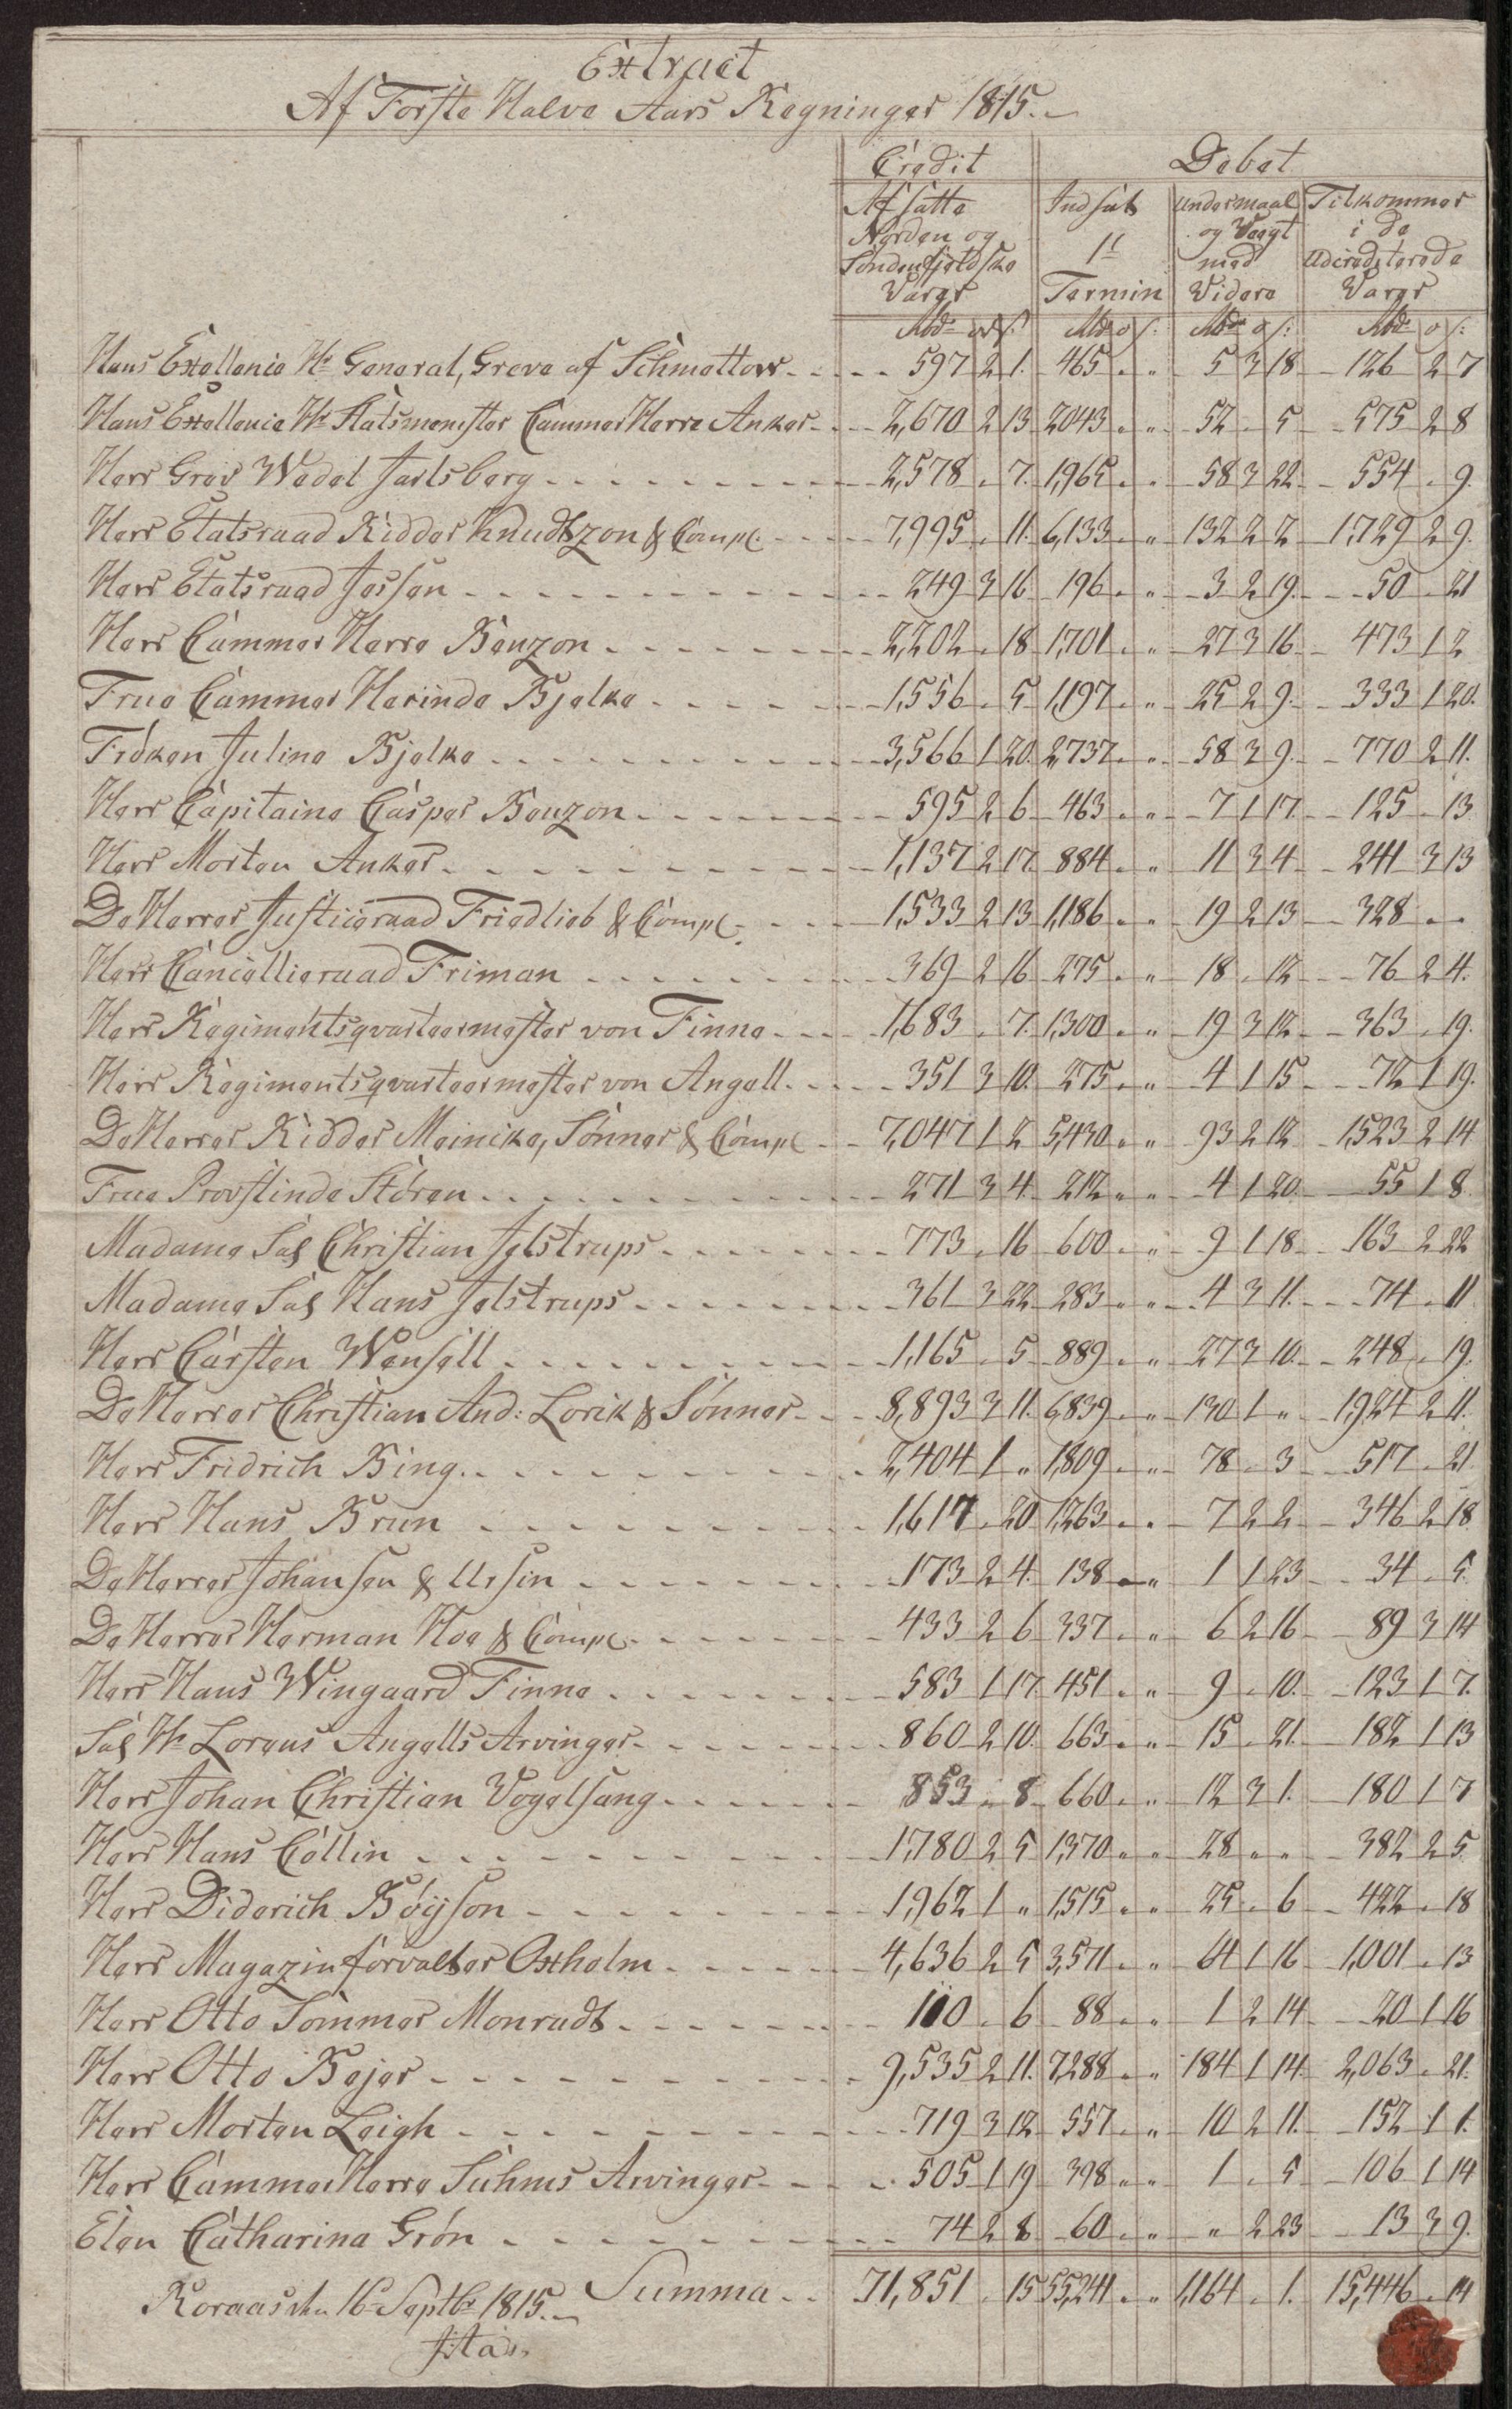 Extract
Af Første Halve Aars Regninger 1815.
Credit Debet
Afsatte Indsat undermaal Tilkommer
Norden og 1t og Vægt i de
Søndenfjeldske med Ucrediterede
Varer Termin Videre Varer
Hans Exellence Hr General, Greve af Schmettow 597 2 1. 465 " " 5 3 18 126 2 7
Hans Exellence Hr Statsmenister CammerHerre Anker 2,670 2 13 2043 " " 52 " 5 575 2 8
Herr Grev Wedel Jarlsberg 2,578 " 7. 1,965 " " 58 3 22 554 " 9.
Herr Etatsraad Ridder Knudtzon & Comp: 7,995 " 11. 6,133 " " 132 2 2 1,729 2 9.
Herr Etatsraad Jessen 249 3 16 196 " " 3 2 19. 50 " 21
Herr Cammer Herre Benzon 2,202 " 18 1,701 " " 27 3 16 473 1 2
Frue Cammer Herinde Bjelke 1,556 " 5 1,197 " " 25 2 9. 333 1 20.
Frøken Juline Bjelke 3,566 1 20. 2,737 " " 58 3 9. 770 2 11.
Herr Capitaine Casper Benzon 595 2 6 463 " " 7 1 17. 125 " 13.
Herr Morten Anker 1,137 2 17. 884 " " 11 3 4 241 3 13
De Herrer Justiceraad Friedlieb & Comp: 1,533 2 13 1,186 " " 19 2 13 328 " "
Herr Cancelliraad Friman 369 2 16 275 " " 18 " 12 76 2 4.
Herr Regimentsqvarteermester von Finne 1,683 " 7. 1,300 " " 19 3 12 363 " 19.
Herr Regimentsqvarteermester von Angell 351 3 10. 275 " " 4 1 15 72 1 19.
De Herrer Ridder Meincke, Sønner & Comp: 7,047 1 2 5,430 " " 93 2 12 1,523 2 14
Frue Provstinde Støren 271 3 4. 212 " " 4 1 20. 55 1 8.
Madame Sal Christian Jelstrups 773 " 16 600 " " 9 1 18 163 2 22
Madame Sal Hans Jelstrups 361 3 22 283 " " 4 3 11. 74 " 11.
Herr Carsten Wensell 1,165 " 5 889 " " 27 3 10. 248 " 19.
De Herrer Christian And: Lorik & Sønner 8,893 3 11. 6,839 " " 130 1 " 1,924 2 11.
Herr Fridrich Bing 2,404 1 " 1,809 " " 78 " 3 517 " 21.
Herr Hans Brun 1,617 " 20 1,263 " " 7 2 2 346 2 18
De Herrer Johansen & Ursin 173 2 4. 138 " " 1 1 23 34 " 5.
De Herrer Herman Hoe & Comp: 433 2 6 337 " " 6 2 16 89 3 14
Herr Hans Wingaard Finne 583 1 17. 451 " " 9 " 10. 123 1 7.
Sal Hr Lorens Angells Arvinger 860 2 10. 663 " " 15 " 21. 182 1 13
Herr Johan Christian Vogelsang 853 " 8 660 " " 12 3 1. 180 1 7
Herr Hans Collin 1,780 2 5 1,370 " " 28 " " 382 2 5.
Herr Diderich Bøyson 1,962 1 " 1,515 " " 25 " 6 422 " 18
Herr Magazinforvalter Oxholm 4,636 2 5 3,571 " " 64 1 16 1,001 " 13
Herr Otto Sommer Monradt 110 " 6 88 " " 1 2 14 20 1 16
Herr Otto Bejer 9,535 2 11. 7,288 " " 184 1 14. 2,063 " 21.
Herr Morten Leigh 719 3 12 557 " " 10 2 11. 152 1 1.
Herr CammerHerre Suhms Arvinger 505 1 19 398 " " 1 " 5 106 1 14
Elen Catharina Grøn 74 2 8 60 " " " 2 23 13 3 9.
Summa 71,851 " 15 55,241 " " 1,164 " 1. 15,446 " 14
Roraas den 16 Septbr 1815.